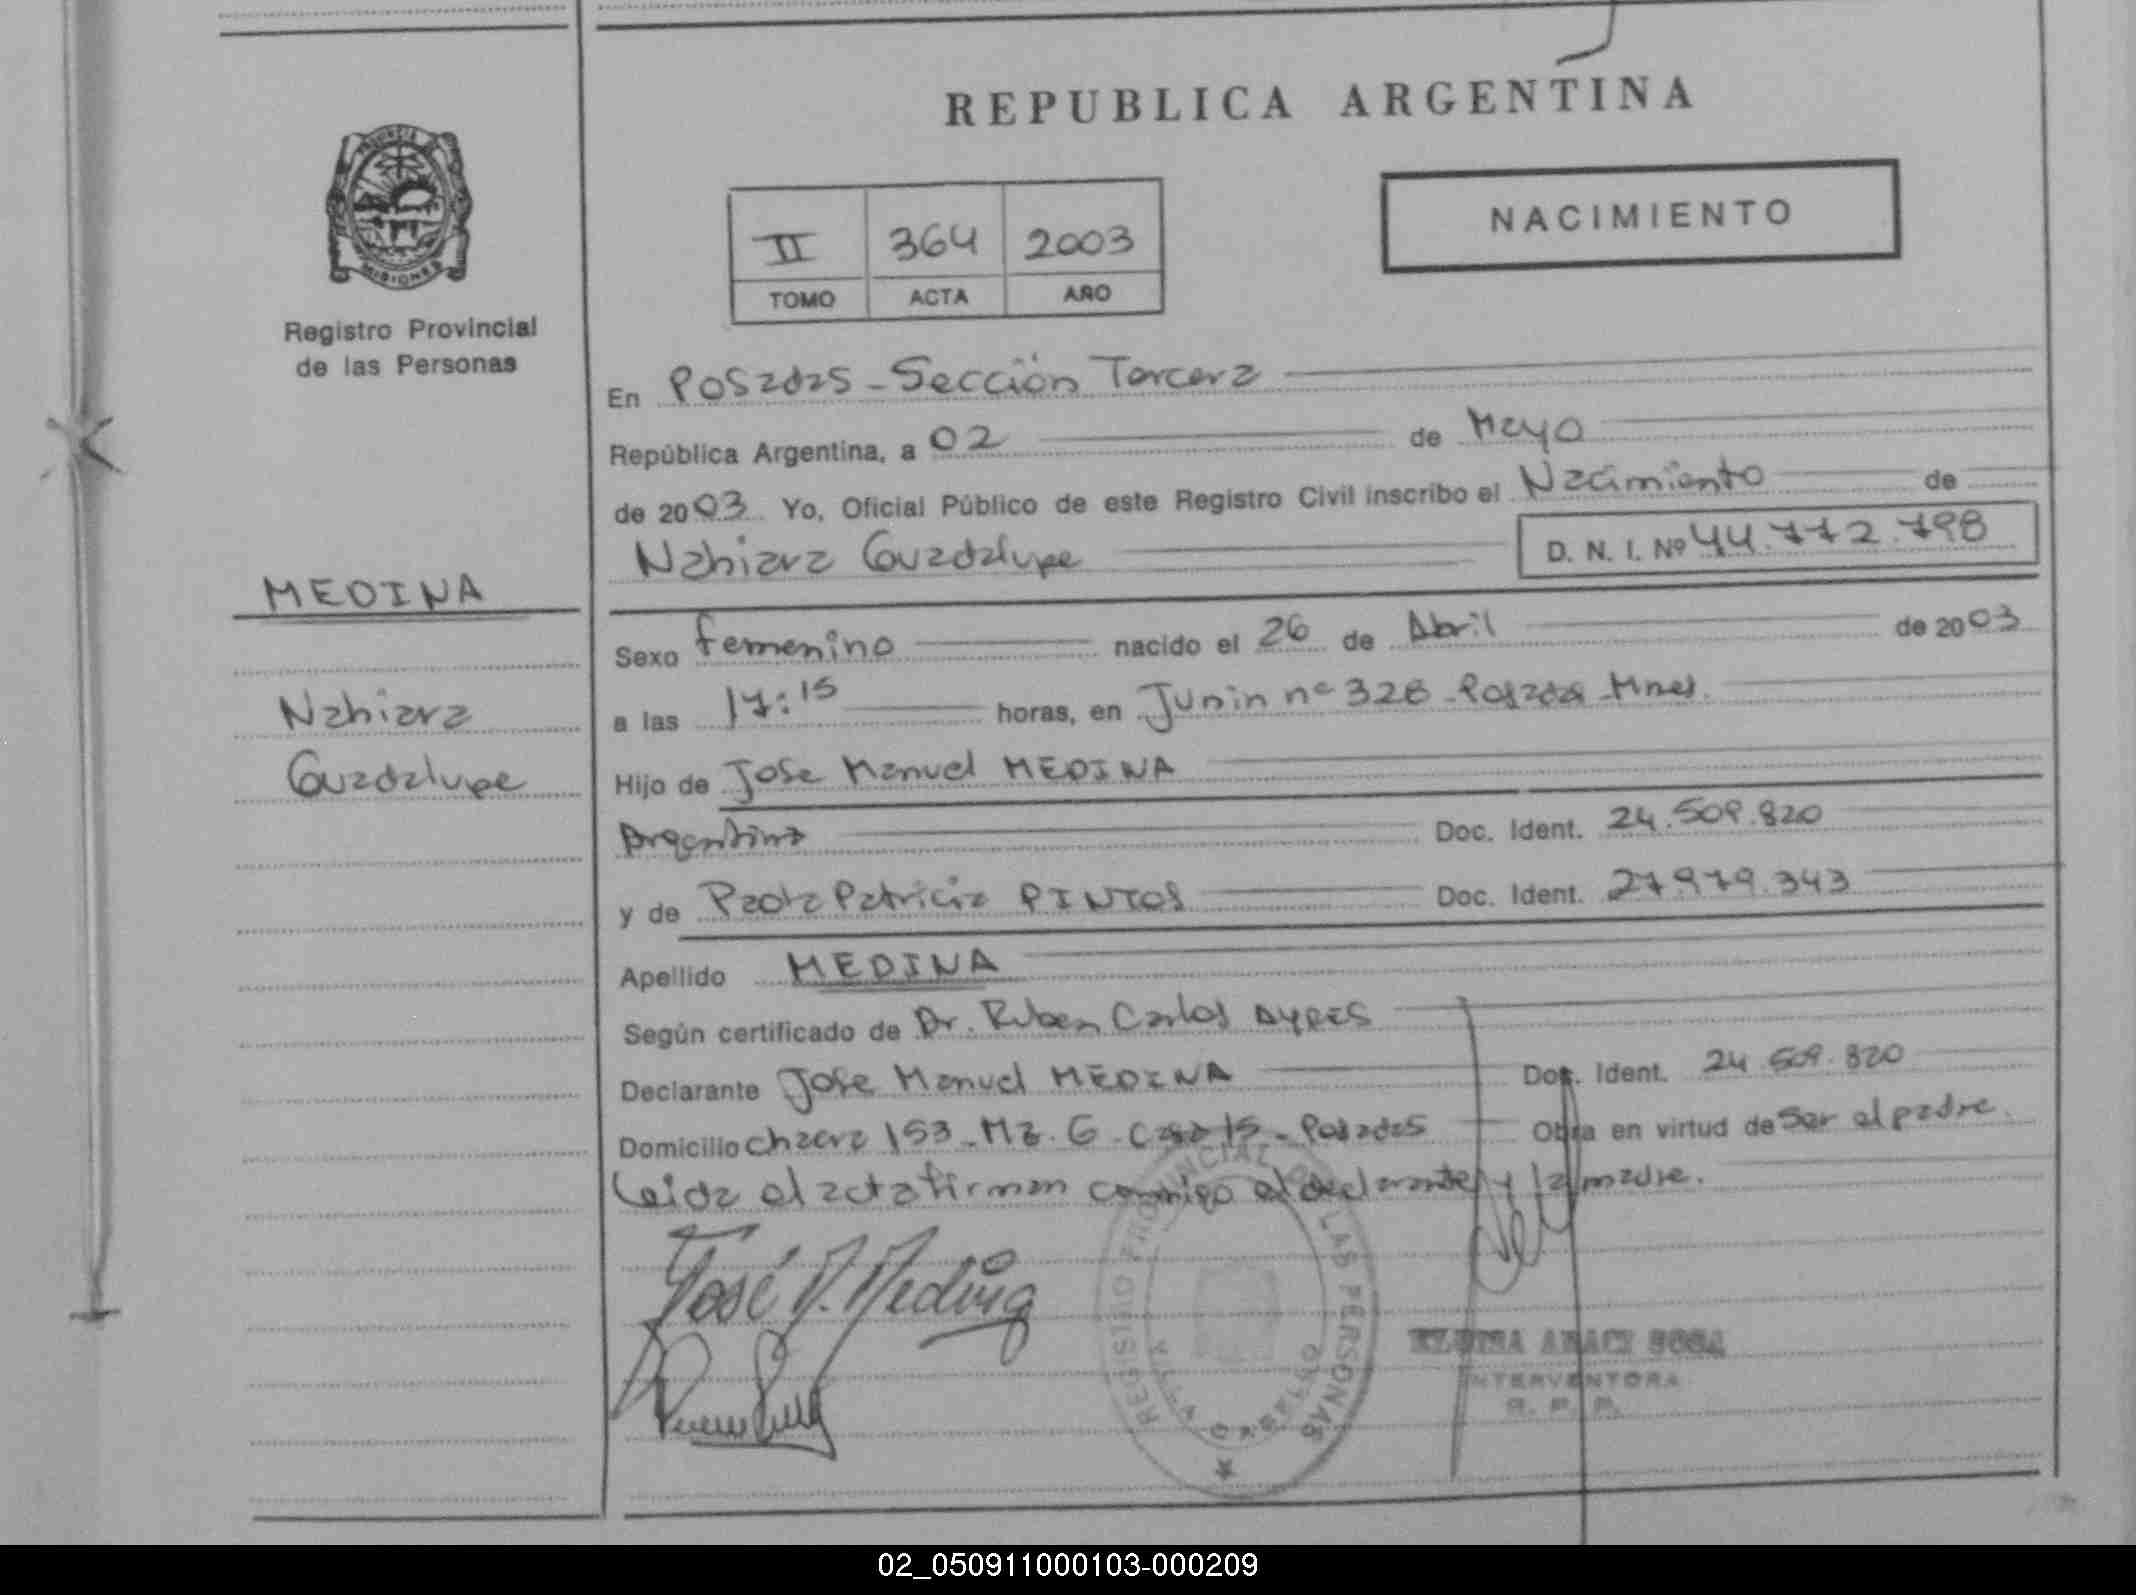 REPUBLICA ARGENTINA
NACIMIENTO
II 364 2003
TOMO ACTA AÑO
PROVINCIA DE
MISIONES
Registro Provincial
de las Personas
MEDINA
Nahiara
Guadalupe
En Posadas - Sección Tercera
República Argentina, a 02 de Mayo
de 2003 Yo, Oficial Público de este Registro Civil inscribo el Nacimiento de
Nahiara Guadalupe D. N. I. Nº 44.772.798
Sexo femenino nacido el 26 de Abril de 2003
a las 17:15 horas, en Junin nº 328 - Posadas Mnes.
Hijo de Jose Manuel MEDINA
Argentina Doc. Ident. 24.509.820
y de Paola Patricia PINTOS Doc. Ident. 27.979.343
Apellido MEDINA
Según certificado de Dr. Ruben Carlos AYRES
Declarante Jose Manuel MEDINA Doc. Ident. 24.509.820
Domicilio chacra 153 - Mz. G - Casa 15 - Posadas Obra en virtud de Ser el padre.
Leida el acta firman conmigo el declarante y la madre.
José M. Medina
REGISTRO PROVINCIAL DE LAS PERSONAS
ARACI SOSA
INTERVENTORA
R. P. P.
02_050911000103-000209